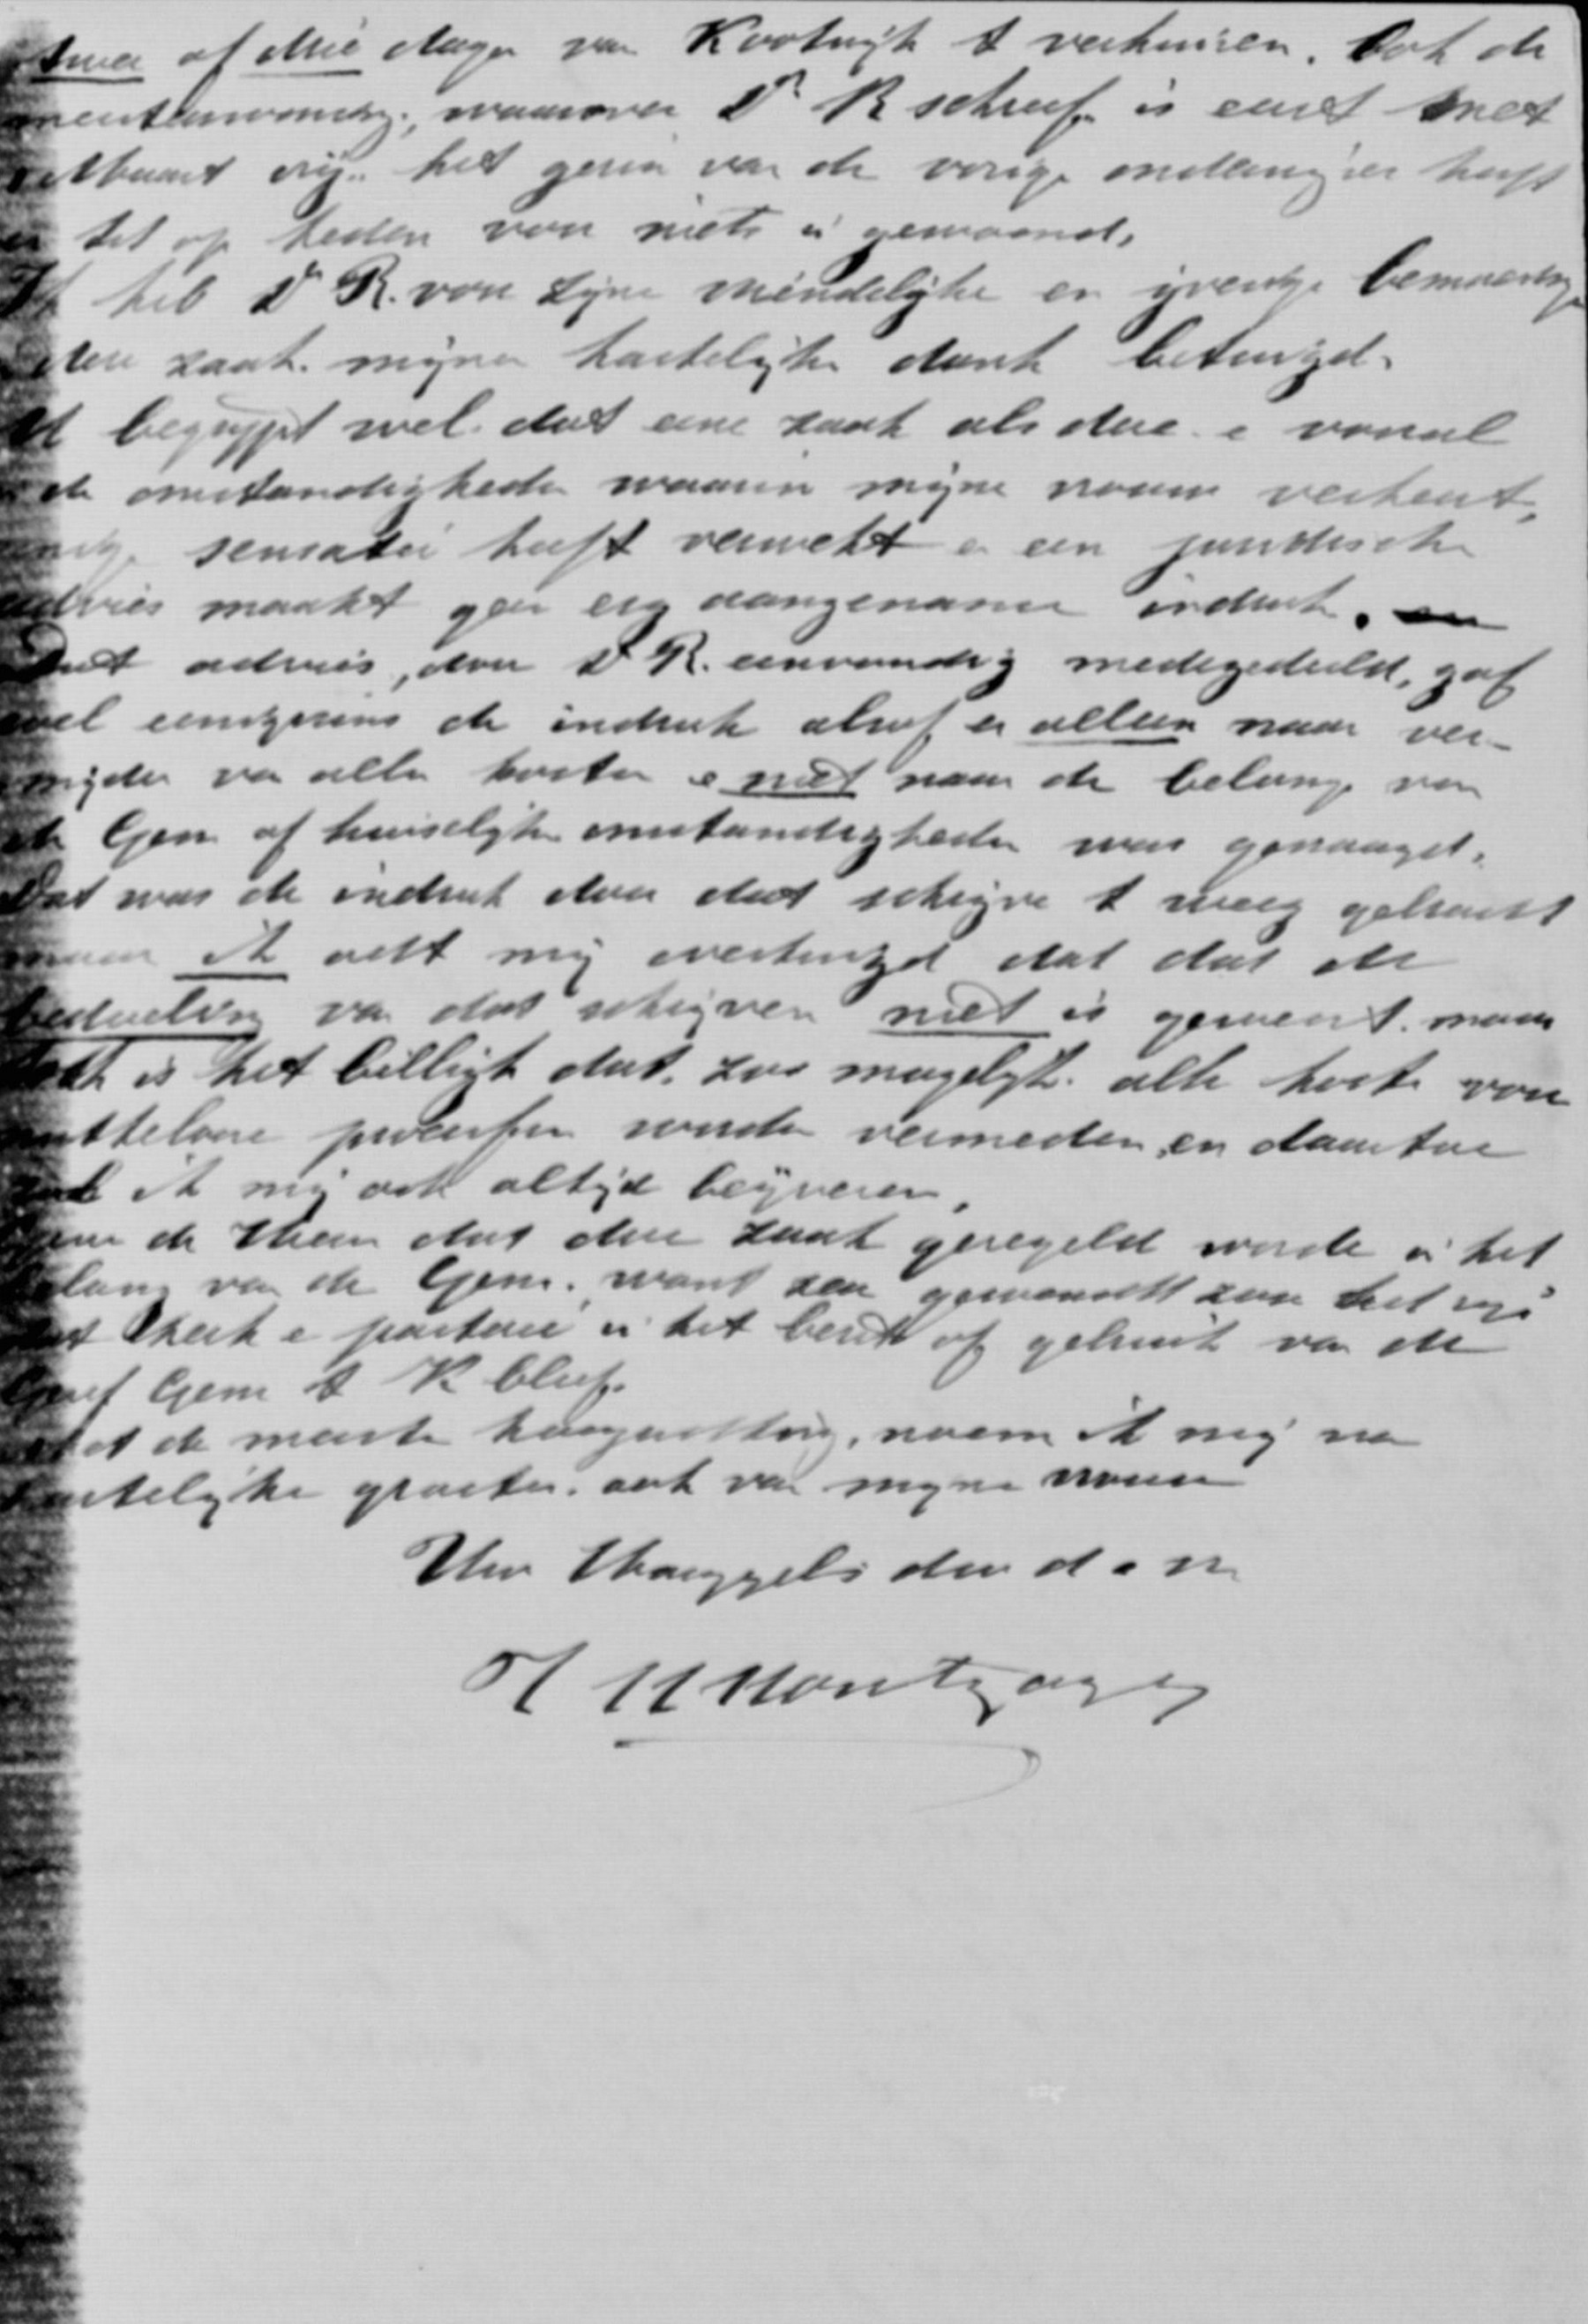 twee of drie dagen van Kootwijk te verhuizen. Ook de
, waarover Dr R schreef, is eerst met
vrij.. het geen van de vorige heeft
er tot op heden voor niets in gewoond.
Ik heb Dr R. voor zijne vriendelijke en ijverige bemoeiing
deze zaak mijnen hartelijken dank betuigd.
U begrijpt wel dat eene zaak als deze e vooral
de omstandigheden waarin mijne vrouw verkeert,
sensatie heeft verwekt e een juridisch
advies maakt geen erg aangenamen indruk.
Dat advies, door Dr R. eenvoudig medegedeeld, gaf
wel eenigszins de indruk alsof er alleen naar ver-
mijden van alle kosten e niet naar de belangen van
de Gem of huiselijke omstandigheden was gevraagd.
Dat was de indruk door dat schrijven te weeg gebracht
maar ik acht mij overtuigd dat dat de
bedoeling van dat schrijven niet is geweest. maar
toch is het billijk dat, zoo mogelijk. alle kosten voor
nuttelooze processen worden vermeden, en daartoe
zal ik mij ook altijd beijveren.
de Heer dat deze zaak geregeld worde in het
belang van de Gem. want zeer gewenscht zou het zijn
dat Kerk e pastorie in het bezit of gebruik van de
Geref Gem te K bleef.
Met de meeste hoogachting, noem ik mij na
hartelijke groeten. ook van mijne vrouw
Uw Hooggel: dw d e vr
H H Montzagy